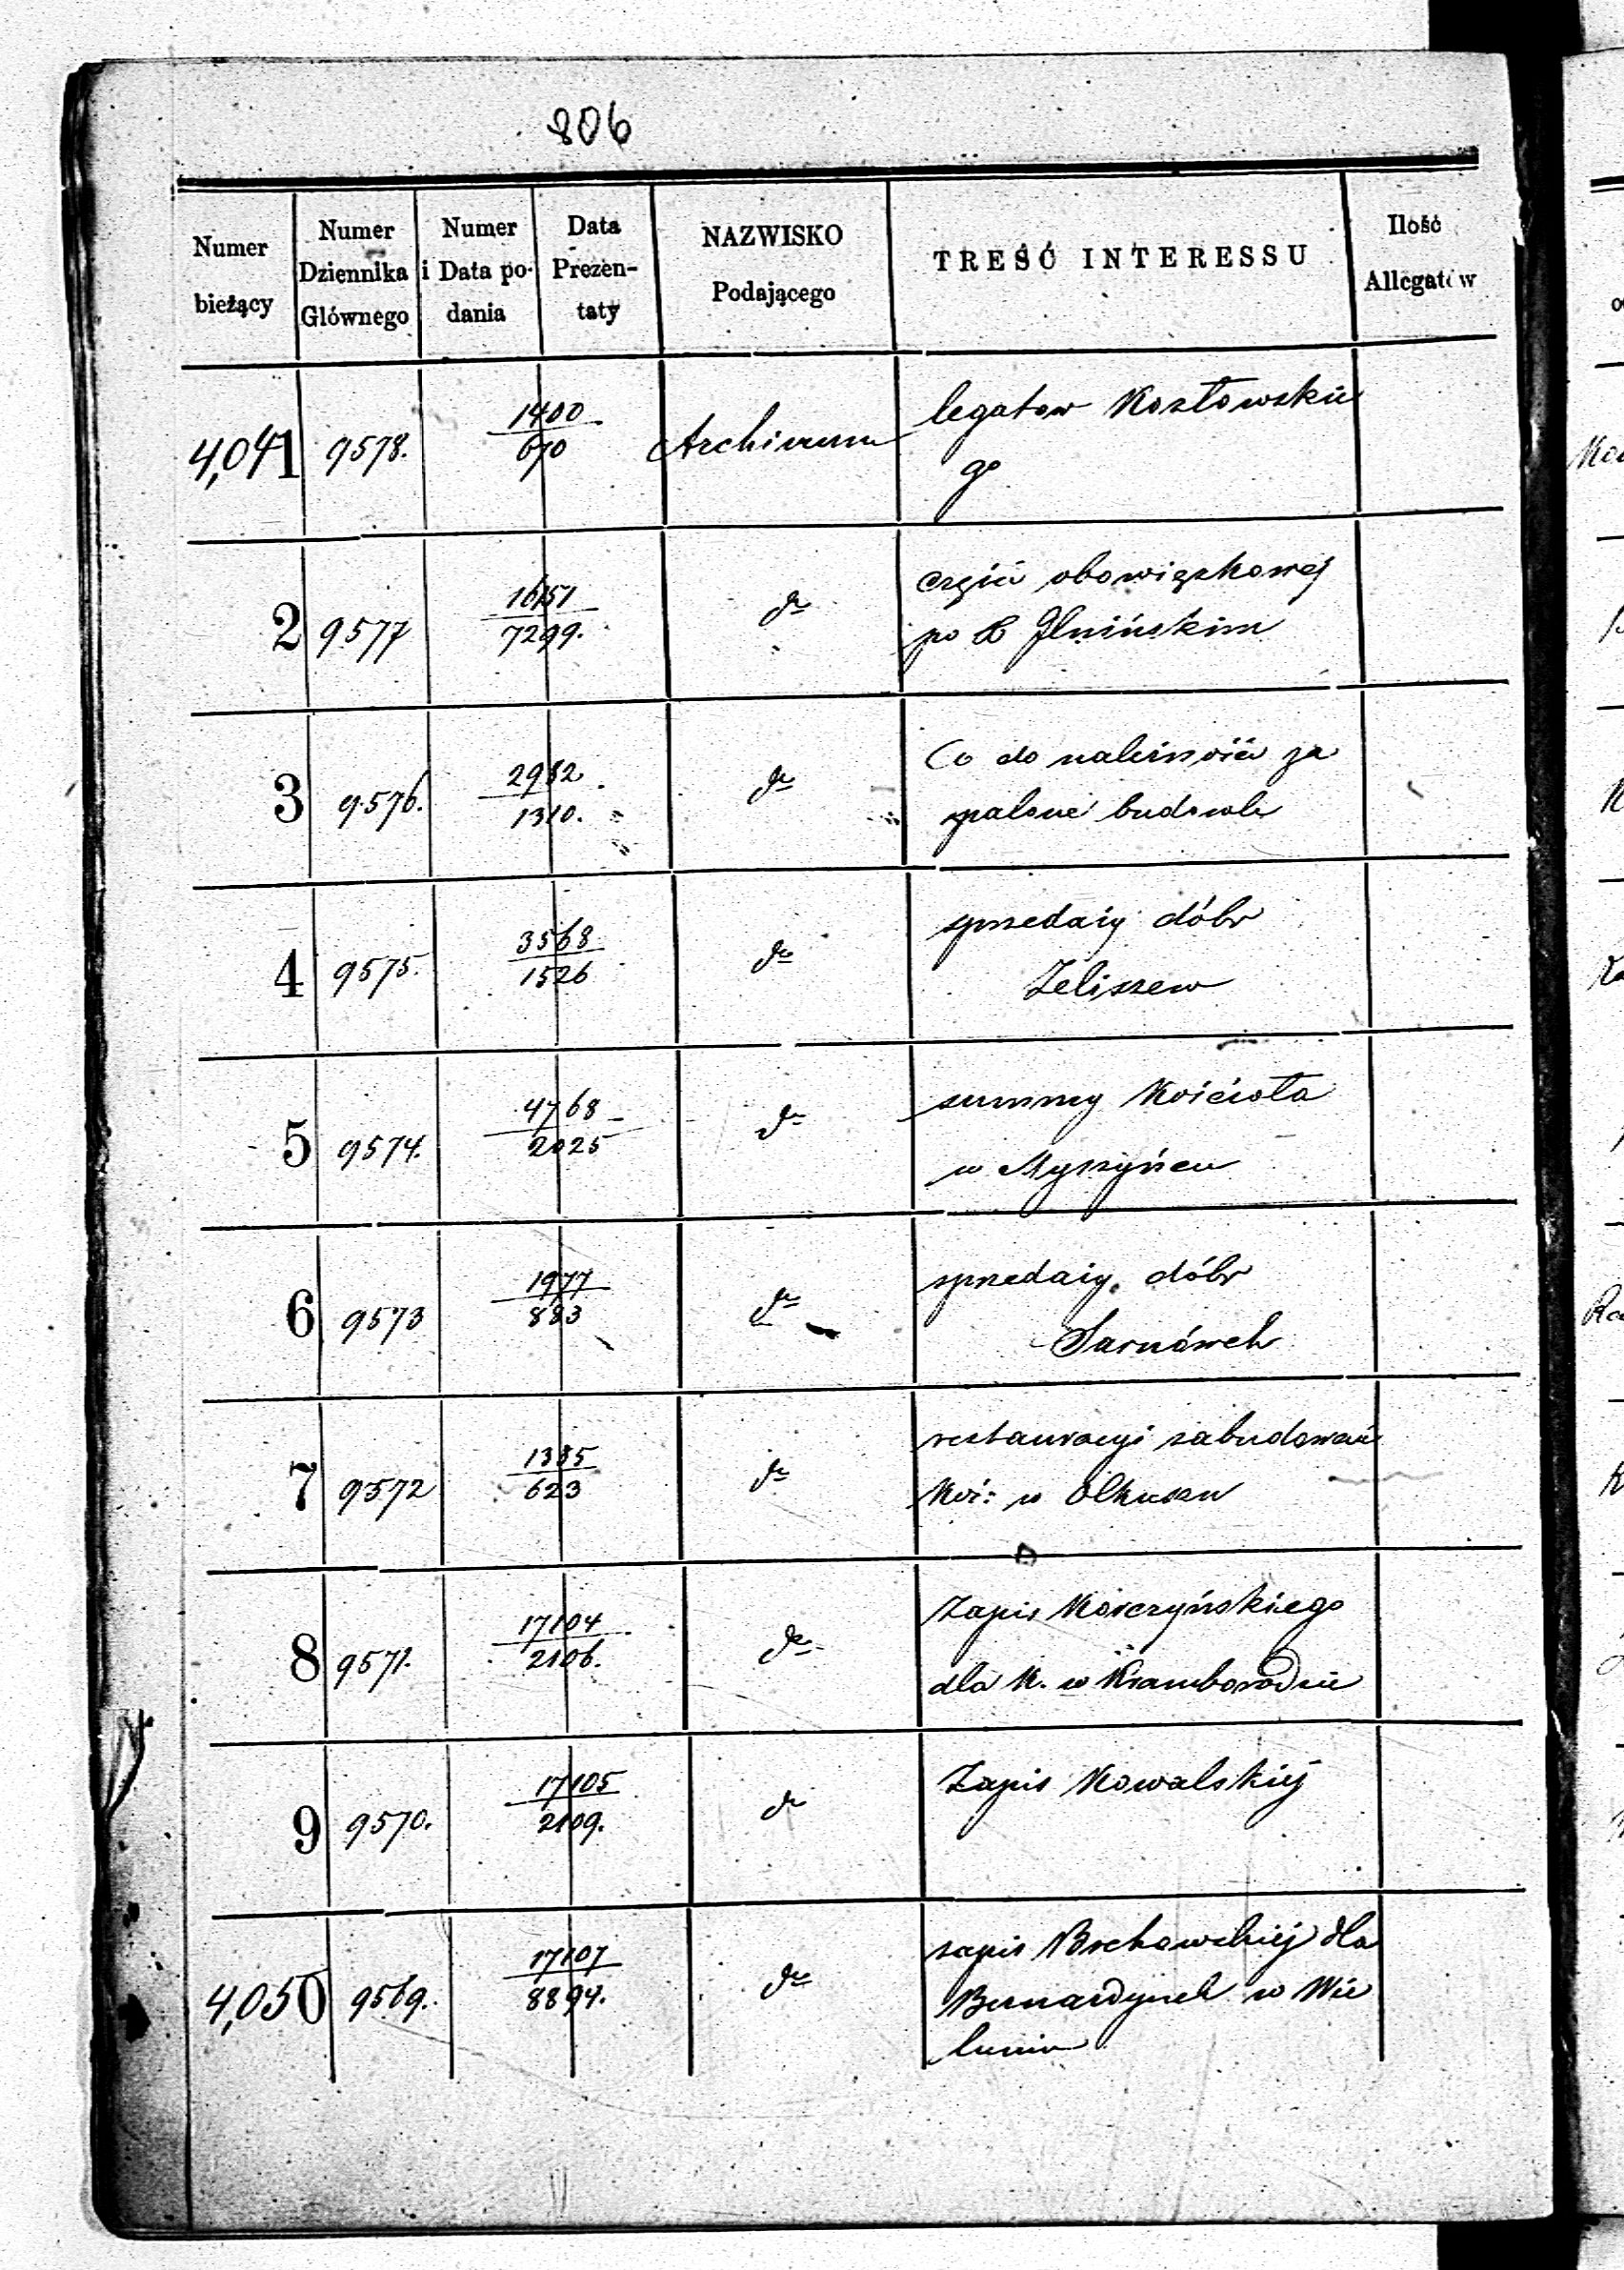 806
Numer bieżący | Numer Dziennika Głównego | Numer i Data podania | Data Prezentaty | NAZWISKO Podającego | TREŚĆ INTERESSU | Ilość Allegatów
4,041 9578. 1400/670 Archiwum legatow Kozłowskie
go
2 9577 16151/7299. do części obowiązkowej
po Ilnińskim
3 9576. 2982/1310. do Co do należności za
palone budowle
4 9575. 3568/1526 do sprzedaży dóbr
Zeliszew
5 9574. 4768/2025 do summy Kościoła
w Myszyńcu
6 9573 1977/883 do sprzedaży dóbr
Sarnówek
7 9572 1385/623 do restauracyi zabudowań
Koś: w Olkuszu
8 9571. 17104/2106. do Zapis Korczyńskiego
dla K. w
9 9570. 17105/2109. do Zapis Kowalskiej
4,050 9569. 17107/8894. do zapis dla
Bernardynek w Wie
luniu